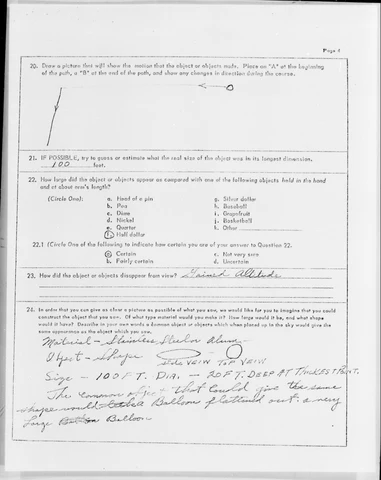 Page 4
20. Draw a picture that will show the motion that the object or objects made. Place an "A" at the beginning
of the path, a "B" at the end of the path, and show any changes in direction during the course.
21. IF POSSIBLE, try to guess or estimate what the real size of the object was in its longest dimension.
100 feet.
22. How large did the object or objects appear as compared with one of the following objects held in the hand
and at about arm's length?
(Circle One): a. Head of a pin g. Silver dollar
b. Pea h. Baseball
c. Dime i. Grapefruit
d. Nickel j. Basketball
e. Quarter k. Other
f. Half dollar
22.1 (Circle One of the following to indicate how certain you are of your answer to Question 22.
a. Certain c. Not very sure
b. Fairly certain d. Uncertain
23. How did the object or objects disappear from view? Gained Altitude
24. In order that you can give as clear a picture as possible of what you saw, we would like for you to imagine that you could
construct the object that you saw. Of what type material would you make it? How large would it be, and what shape
would it have? Describe in your own words a common object or objects which when placed up in the sky would give the
same appearance as the object which you saw.
Material - Stainless Steel or Alum-
Object - shape
SIDE VEIW TOP VEIW
Size - 100 FT. DIA. - 20 FT. DEEP AT THICKEST POINT.
The common object that could give the same
shape would be a Balloon flattened out. a very
Large Balloon